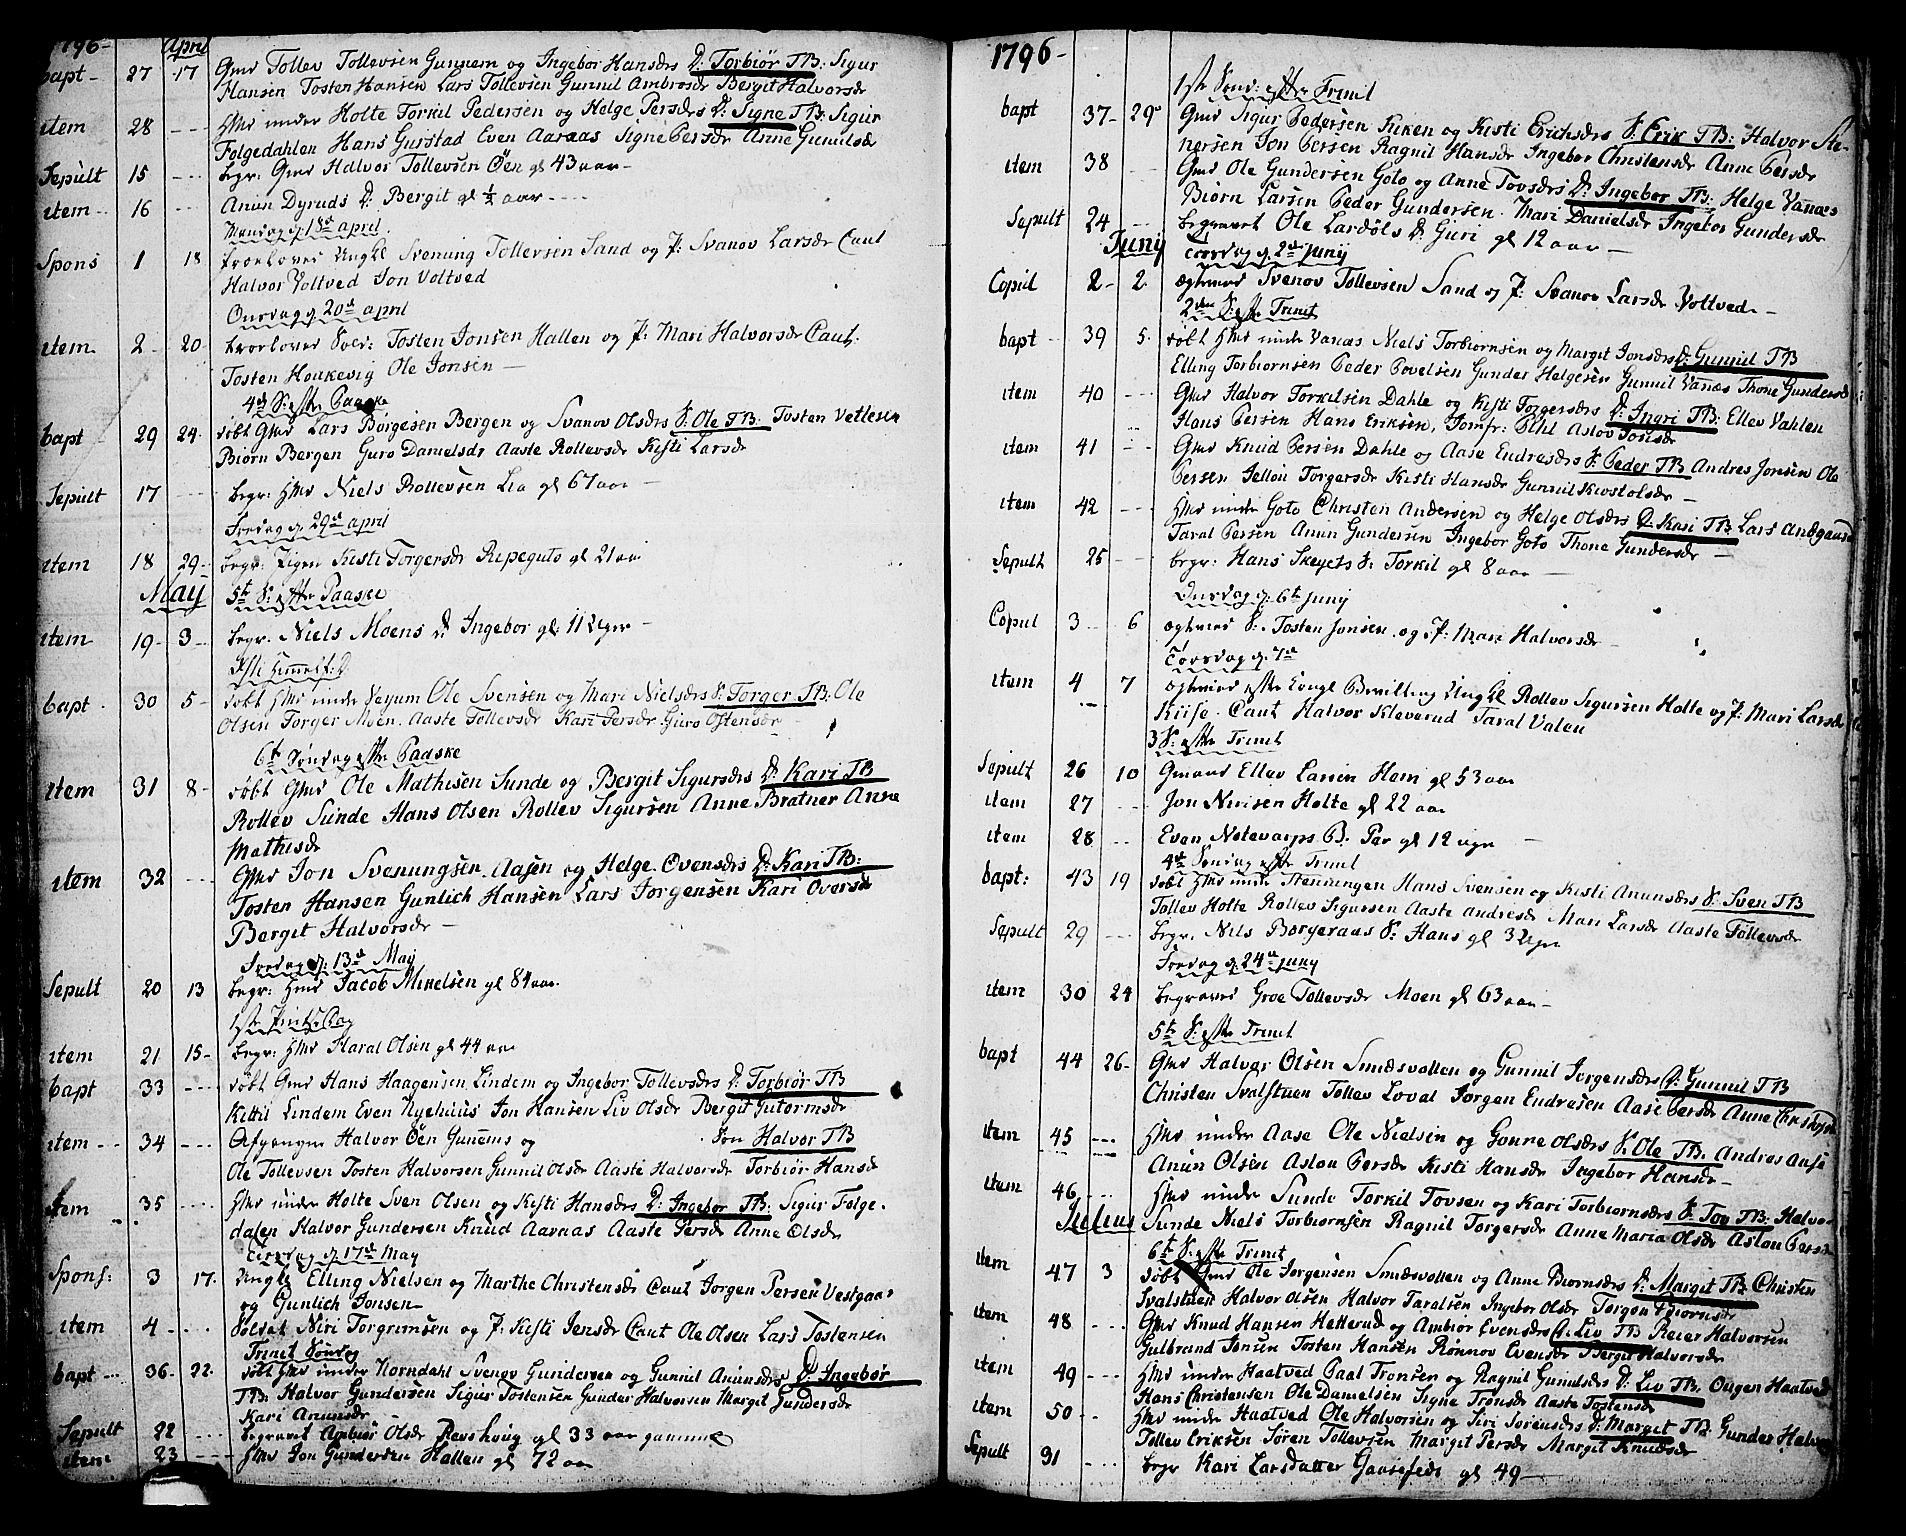 1796- April
bapt- 27 17 Gmd Tollev Tollevsen Gunnem og Ingebor Hansdrs D: Torbiør TB: Sigur
Hansen Tosten Hansen Lars Tollevsen Gunnil Ambrosdr Bergit Halvorsdr
item 28 --- Hmd under Holte Torkil Pedersen og Helge Persdrs D: Signe TB: Sigur
Folgedahlen Hans Gurstad Even Aaraas Signe Persdr Anne Gunnilsdr
Sepult 15 --- begr: Gmd Halvor Tollevsen Öen gl 43 aar-
item-- 16 --- Anun Dyruds D: Bergit gl ½ aar
Mandag d. 18de april.
Spons 1 18 troelover Ungkl Svenung Tollevsen Sand og P: Svanov Larsdr Caut
Halvor Voltved Jon Voltved
Onsdag d. 20de april
item 2- 20- troelover Tosten Jonsen Hallen og P: Mari Halvorsdr Caut.
Tosten Houkevig Ole Jonsen-
4de S: efter Paaske
bapt- 29 24- døbt Gmd Lars Börgesen Bergen og Svanov Olsdrs S. Ole TB: Tosten Vetlesen
Biørn Bergen Guro Danielsdr Aaste Rollevsdr Kisti Larsdr
Sepult 17 --- begr: Hmd Niels Rollevsen Lia gl 67 aar-
Fredag d. 29de april
item 18 29- begr: Pigen Kisti Torgersdr Ripeguto gl 21 aar
May 5te S: efter Paaske
item 19- 3- begr. Niels Moens D. Ingebor gl: 11 Uger-
bapt. 30 5- døbt Hmd under Veyum Ole Svensen og Mari Nielsdrs S. Torger TB: Ole
Olsen Torger Moen. Aaste Tollevsdr Kari Persdr Guro Ostensdr
6te Søndag efter Paaske
item 31 8- døbt Gmd Ole Mathisen Sunde og Bergit Sigursdrs D. Kari TB
Rollev Sunde Hans Olsen Rollev Sigursen Anne Bratner Anne
Mathisdr
item 32 -- Gmd Jon Svenungsen Aasen og Helge Ovensdrs D: Kari TB:
Tosten Hansen Gunlich Hansen Lars Jorgensen Kari Oversdr
Bergit Halvorsdr-
Fredag d. 13de May
Sepult 20 13 begr: Hmd Jacob Mikelsen gl 84 aar.
1ste Pintse Dag
item 21 15- begr: Hmd Haral Olsen gl 44 aar
bapt 33 ---- døbt Gmd Hans Haagensen Lindem og Ingebor Tollevsdrs D: Torbiør TB
Kittil Lindem Even Nyehuus Jon Hansen Liv Olsdr Bergit Gutormsdr
item -- 34 ---- Afgangne Halvor Öen Gunems og Søn Halvor TB
Ole Tollevsen Tosten Halvorsen Gunnil Olsdr Aaste Halvorsdr Torbiør Hansdr
item 35 --- Hmd under Holte Sven Olsen og Kisti Hansdrs D: Ingebor TB: Sigur Folge-
dalen Halvor Gundersen Knud Aarnas Aaste Persdr Anne Olsdr
Tirsdag d. 17de May
Spons: 3 17. Ungkl Elling Nielsen og Marthe Christensdr Caut Jorgen Persen Vestgaar
og Gunlich Jonsen-
item 4- ---- Soldat Niri Torgrimsen og P: Kisti Jensdr Caut Ole Olsen Lars Tostensen
Trinit Søndag
bapt --- 36- 22. døbt Hmd under Norndahl Svenov Gundersen og Gunnil Anunsdrs D: Ingebör
TB: Halvor Gundersen Sigur Tostensen Gunder Halvorsen Margit Gundersdr
Kari Anunsdr-
Sepult 22 ---- begravet Ambiør Olsdr Revshoug gl 33 aar gammel
item 23 ---- Hmd Jon Gundersen Hallen gl 72 aar
1796-
1ste Sønd: efter Trinit
bapt 37- 29 Gmd Sigur Pedersen Kiken og Kisti Erichsdrs S. Erik TB: Halvor Ste-
nersen Jon Persen Ragnil Hansdr Ingebor Christensdr Anne Persdr
item 38 --- Gmd Ole Gundersen Goto og Anne Tovsdrs D. Ingebor TB: Helge Vanaes
Biørn Larsen Peder Gundersen. Mari Danielsdr Ingebor Gundersdr
Sepult 24 --- begravet Ole Lardöls D. Guri gl 12 aar-
Junij Torsdag d. 2de Junij
Copul 2- 2. ægteviet Svenov Tollevsen Sand og P: Svanov Larsdr Voltved-
2den S: efter Trinit
bapt 39 5. døbt Hmd under Vanæs Niels Torbiørnsen og Margit Jonsdrs D: Gunnil TB
Elling Torbiornsen Peder Povelsen Gunder Helgesen Gunnil Vanæs Thone Gundersd
item 40 --- Gmd Halvor Torkilsen Dahle og Kisti Torgersdrs D: Ingri TB: Ellev Vahlen
Hans Persen Hans Eriksen, Jomfr: Bihl Aslov Jonsdr
item 41 --- Gmd Knud Persen Dahle og Aase Endresdrs S. Peder TB Andres Jonsen Ole
Persen Jellou Torgersdr Kisti Hansdr Gunnil Kiostolsdr-
item 42 --- Hmd under Goto Christen Andersen og Helge Olsdrs D. Kari TB Lars Andgaard
Taral Persen Anun Gundersen Ingebor Goto Thone Gundersdr-
Sepult 25 --- begr: Hans Skeyets S. Torkil gl 8 aar-
Onsdag d. 6te Juny
Copul 3-- 6 ægteviet S. Tosten Jonsen og P: Mari Halvorsdr
Torsdag d. 7de
item 4 7 ægteviet efter Kongl Bevilling Ungkl Rollev Sigursen Holte og P: Mari Larsdr
Kiise. Caut Halvor Kleverud Taral Valen
3 S: efter Trinit
Sepult 26 10 Gmand Ellev Larsen Hem gl 53 aar
item 27 --- Jon Nirisen Holte gl 22 aar
item 28 -- Even Notevarps B. Per gl 12 uger-
4de Søndag efter Trinit
bapt: 43 19 døbt Hmd under Stenningen Hans Svensen og Kisti Anunsdrs S. Sven TB
Tollev Holte Rollev Sigursen Aaste Andresdr Mari Larsdr Aaste Tollevsdr
Sepult 29 --- begr. Nils Borgeraas S. Hans gl 3 Uger
Fredag d. 24de Juny
item 30 24 begravet Groe Tollevsdr Moen gl 63 aar-
5te S. efter Trinit
bapt 44 26- Gmd Halvor Olsen Smæsvollen og Gunnil Jorgensdrs D: Gunnil TB
Christen Svalstuen Tollev Loval Jorgen Endresen Aase Persdr Anne Christofsd
item 45 --- Hmd under Aase Ole Nielsen og Gonne Olsdrs S. Ole TB. Andros Aase
Anun Olsen Aslou Persdr Kisti Hansdr Ingebor Hansdr-
item 46 --- Hmd under Sunde Torkil Tovsen og Kari Torbiornsdrs S. Tov TB: Halvor
Julius Sunde Niels Torbiornsen Ragnil Torgersdr Anne Maria Olsdr Aslou Persdr
6te S. efter Trinit
item 47 3 døbt Gmd Ole Jorgensen Smæsvollen og Anne Biornsdrs D: Margit TB Christen
Svalstuen Halvor Olsen Halvor Taralsen Ingebor Olsdr Torgon Biornsdr
item 48 -- Gmd Knud Hansen Hetterud og Ambior Evensdrs D. Liv TB Reier Halvorsen
Gulbrand Jonsen Tosten Hansen Rønnov Evensdr Bergit Halvorsdr
item 49 --- Hmd under Haatved Paal Tronsen og Ragnil Gunulsdrs D: Liv TB. Ougen Haatved
Hans Christensen Ole Danielsen Signe Tronsdr Aaste Tostensdr
item 50 -- Hmd under Haatved Ole Halvorsen og Siri Sorensdrs D: Margit TB: Gunder Halvor
Tollev Eriksen Søren Tollevsen Margit Persdr Margit Knudsdr
Sepult 31 ---- begr Kari Larsdatter Gaasefedt gl 49-